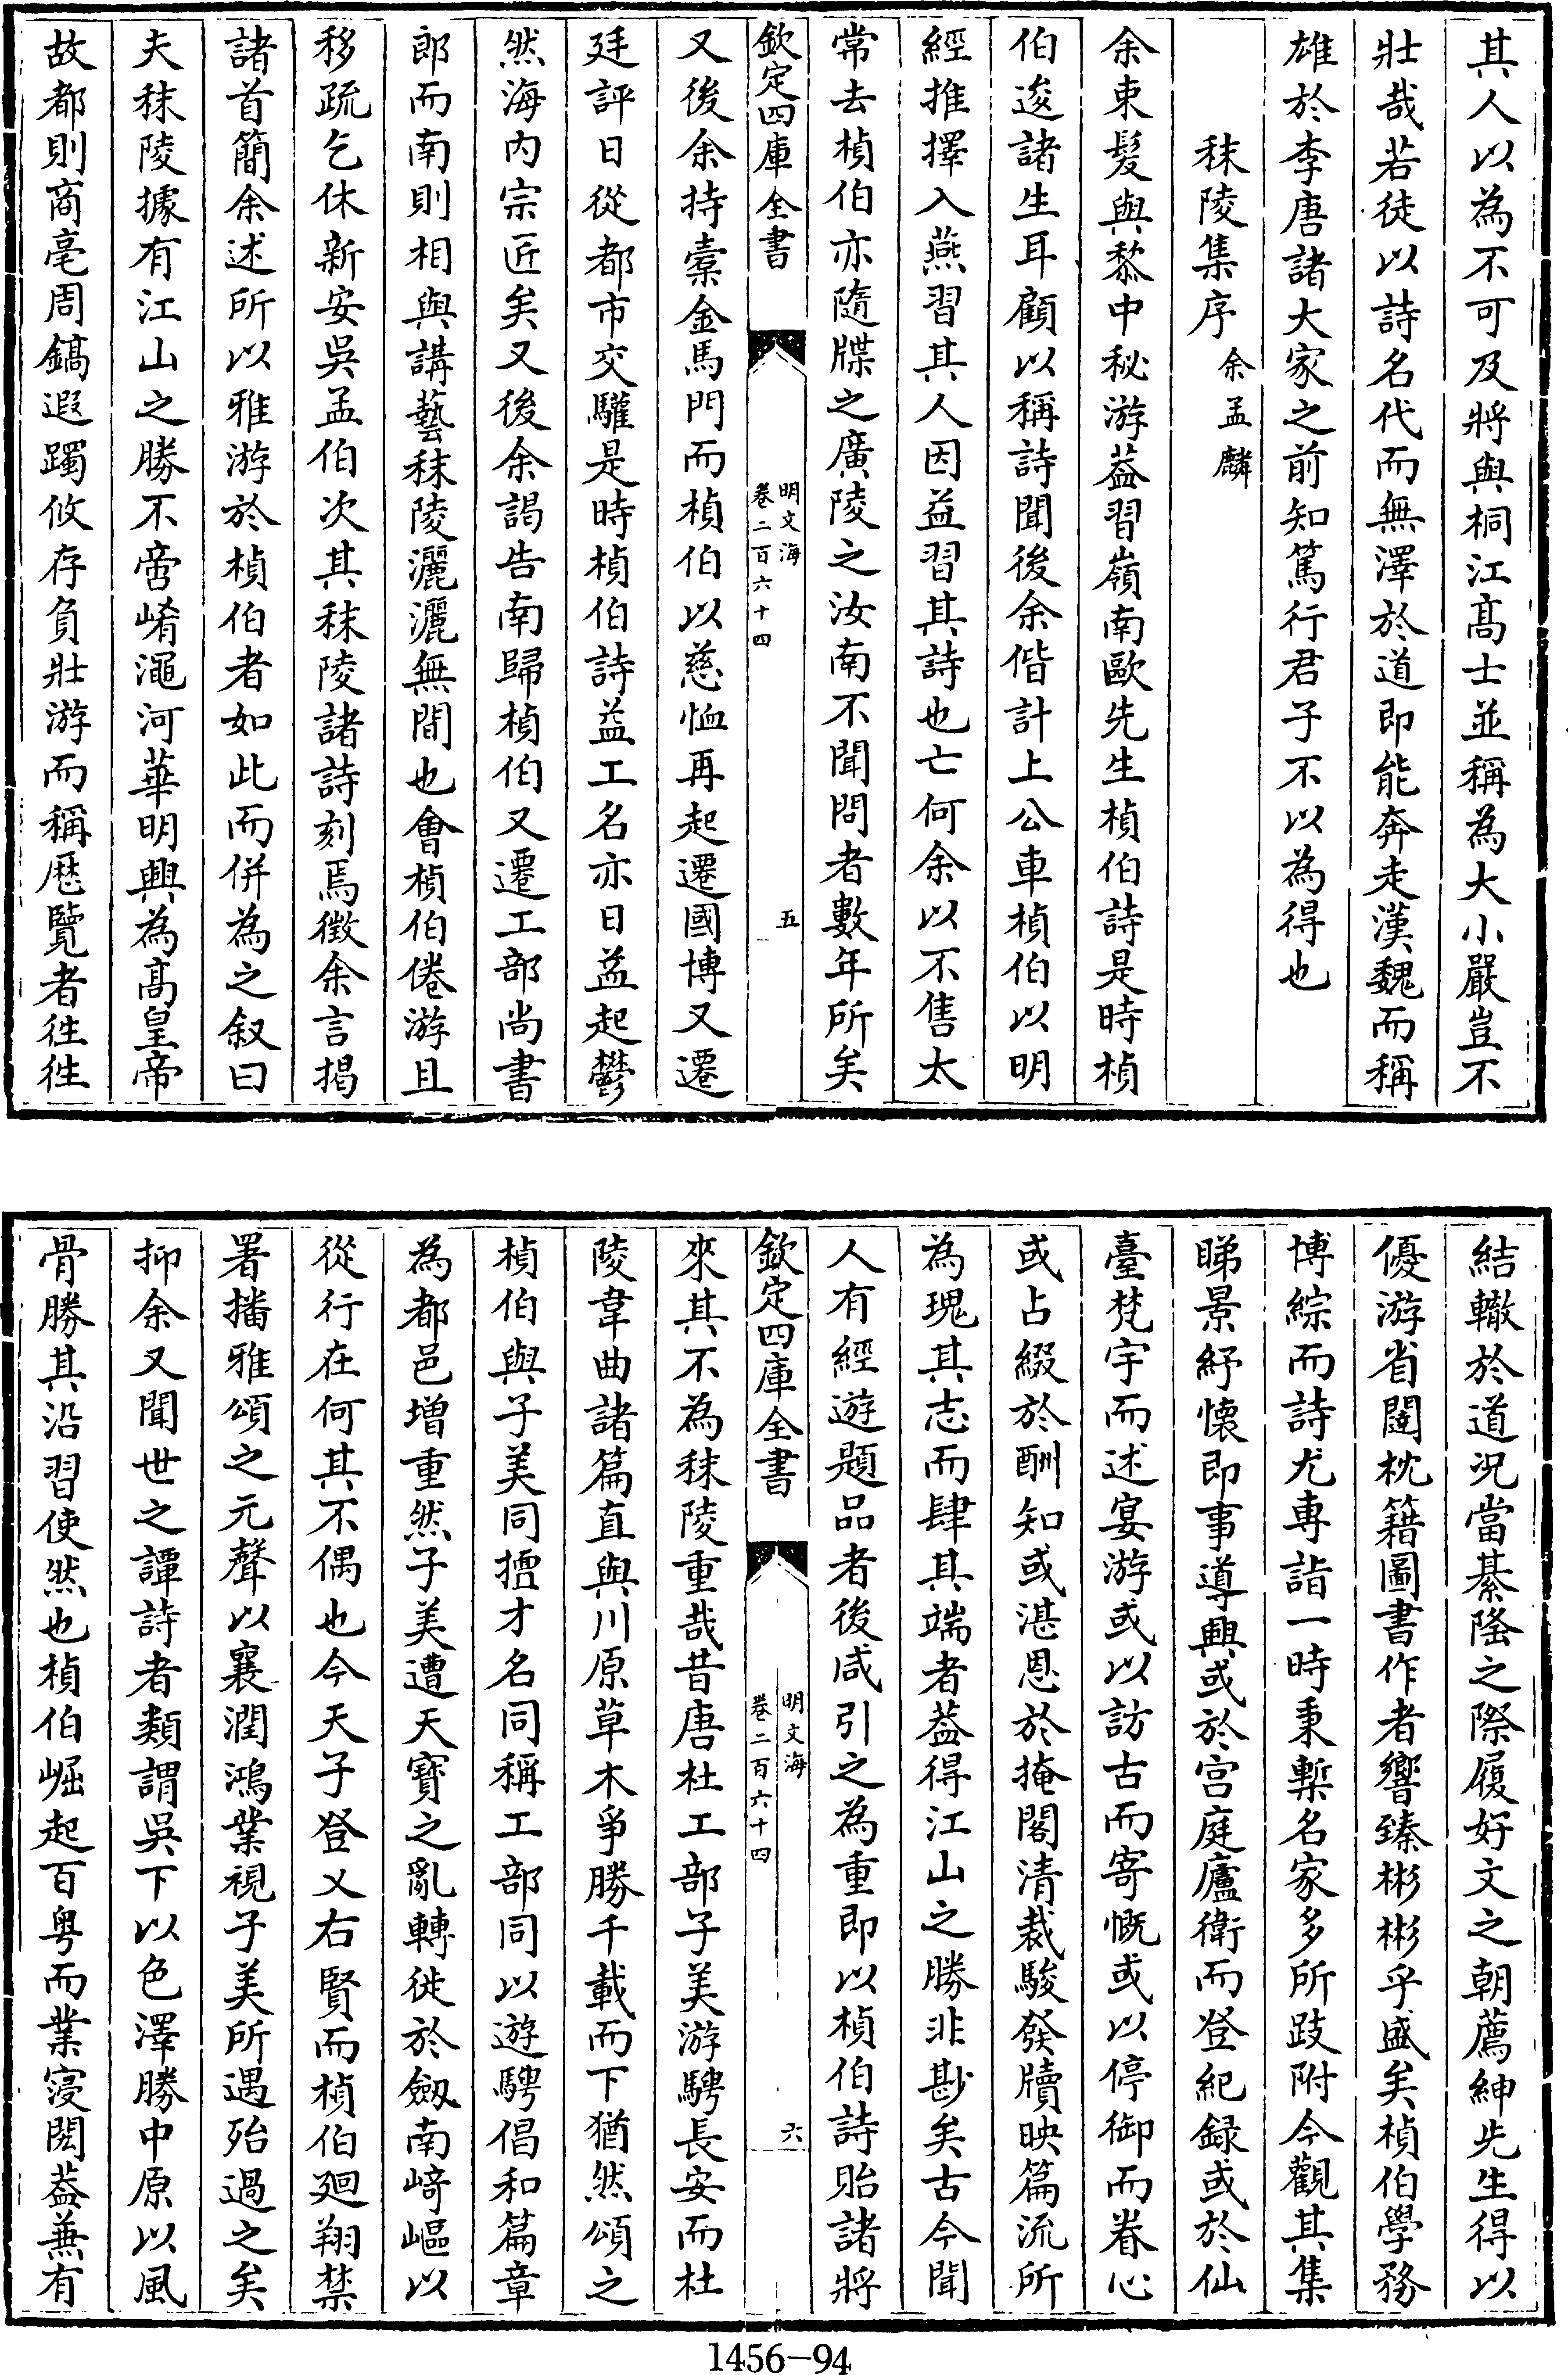 其人以為不可及將與桐江髙士並稱為大小嚴豈不
壯哉若徒以詩名代而無澤於道即能奔走漢魏而稱
雄於李唐諸大家之前知篤行君子不以為得也
秣陵集序 余孟麟
余束髮與黎中秘游葢習嶺南歐先生楨伯詩是時楨
伯逡諸生耳顧以稱詩聞後余偕計上公車楨伯以明
經推擇入燕習其人因益習其詩也亡何余以不售太
常去楨伯亦隨牒之廣陵之汝南不聞問者數年所矣
欽定四庫全書 明文海 卷二百六十四 五
又後余持槖金馬門而楨伯以慈恤再起遷國博又遷
廷評日從都市交驩是時楨伯詩益工名亦日益起鬱
然海内宗匠矣又後余謁告南歸楨伯又遷工部尚書
郎而南則相與講藝秣陵灑灑無間也㑹楨伯倦游且
移疏乞休新安吳孟伯次其秣陵諸詩刻焉徵余言揭
諸首簡余述所以雅游於楨伯者如此而併為之叙曰
夫秣陵據有江山之勝不啻崤澠河華明興為髙皇帝
故都則商亳周鎬遐躅攸存負壯游而稱厯覽者徃徃
結轍於道况當綦隆之際履好文之朝薦紳先生得以
優游省闥枕籍圖書作者響臻彬彬乎盛矣楨伯學務
博綜而詩尤專詣一時秉槧名家多所跂附今觀其集
睇景紓懷即事導興或於宫庭廬衛而登紀録或於仙
臺梵宇而述宴游或以訪古而寄慨或以停御而眷心
或占綴於酬知或湛恩於掩閣清裁駿發牘映篇流所
為瑰其志而肆其端者葢得江山之勝非尠矣古今聞
人有經遊題品者後咸引之為重即以楨伯詩貽諸將
欽定四庫全書 明文海 卷二百六十四 六
來其不為秣陵重哉昔唐杜工部子美游騁長安而杜
陵韋曲諸篇直與川原草木爭勝千載而下猶然頌之
楨伯與子美同擅才名同稱工部同以遊騁倡和篇章
為都邑增重然子美遭天寳之亂轉徙於劔南﨑嶇以
從行在何其不偶也今天子登乂右賢而楨伯廻翔禁
署播雅頌之元聲以襄潤鴻業視子美所遇殆過之矣
抑余又聞世之譚詩者類謂吳下以色澤勝中原以風
骨勝其沿習使然也楨伯崛起百粤而業寖閎葢兼有
1456-94